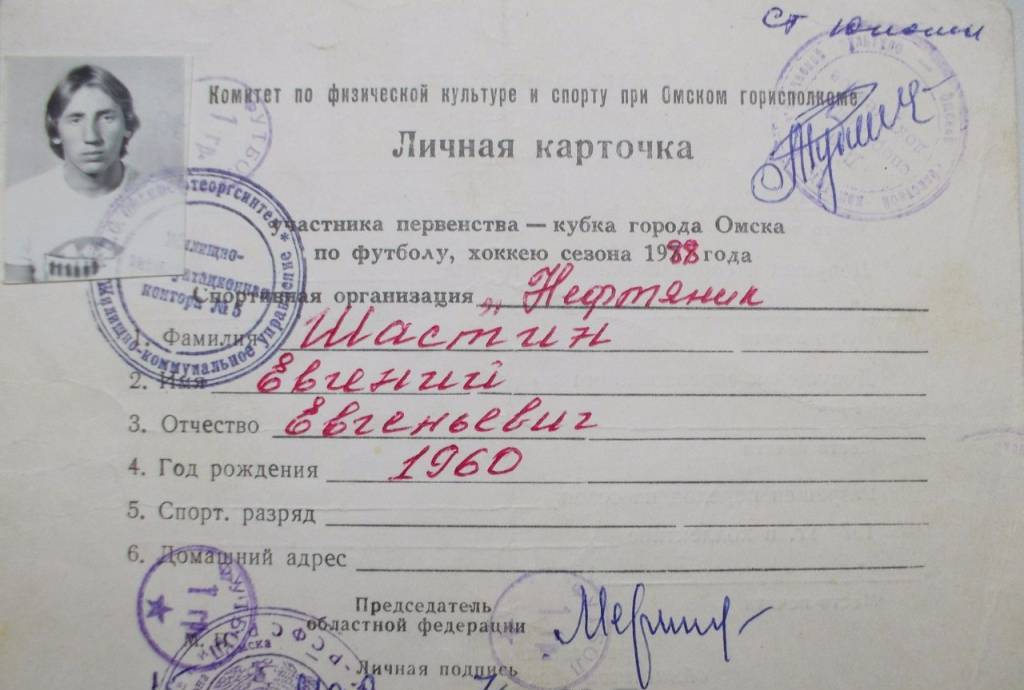 ст юноши
Комитет по физической культуре и спорту при Омском горисполкоме
Личная карточка
участника первенства — кубка города Омска
по футболу, хоккею сезона 1978 года
Спортивная организация „Нефтяник
1. Фамилия Шастин
2. Имя Евгений
3. Отчество Евгеньевич
4. Год рождения 1960
5. Спорт. разряд
6. Домашний адрес
Председатель
областной федерации
М. П.
Личная подпись
Жилищно-
эксплуатационная
контора № 5
Жилищно-коммунальное управление
1 гр.
1 гр.
РСФСР